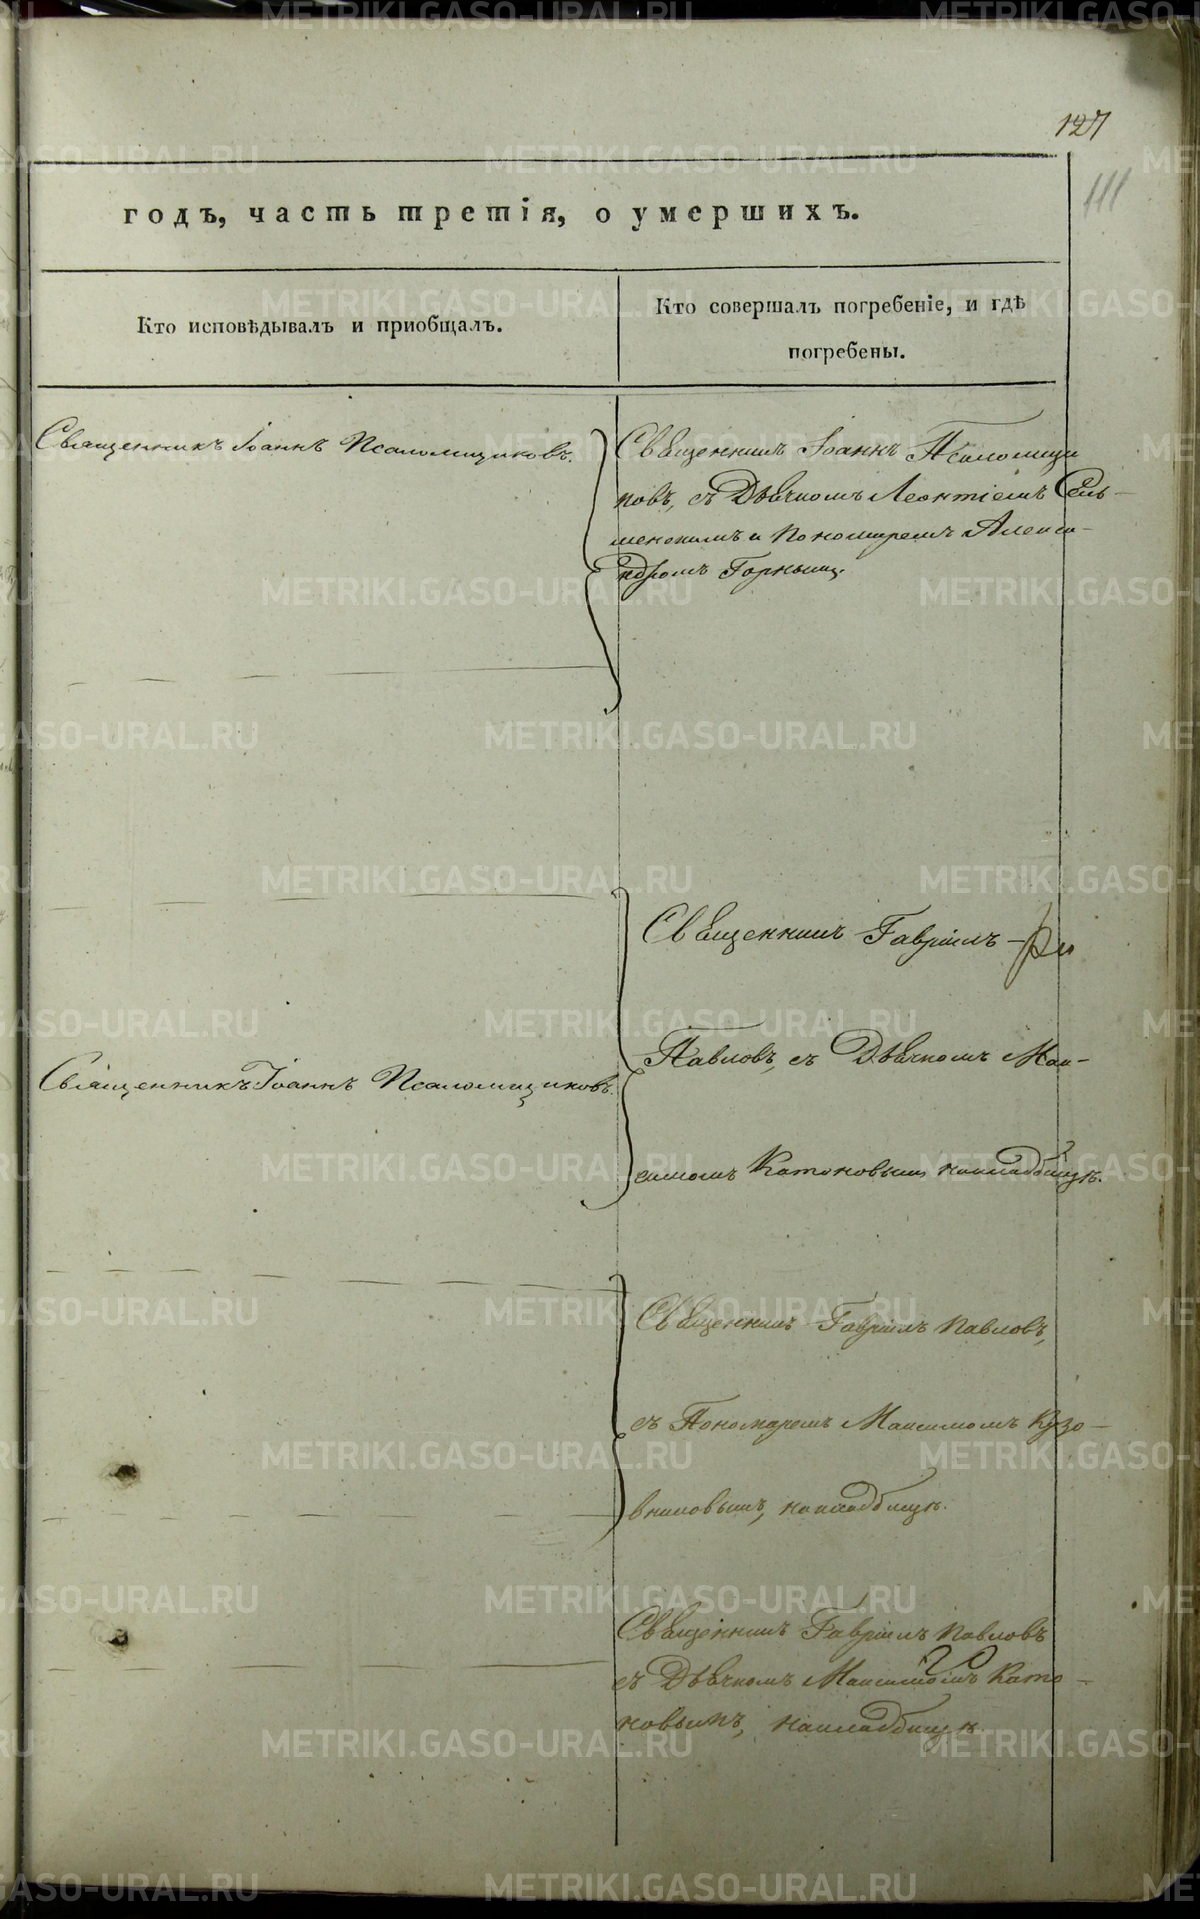 127
111
годъ, часть третія, о умершихъ.
Кто исповѣдывалъ и пріобщалъ.
Кто совершалъ погребеніе, и гдѣ
погребены.
Священникъ Іоаннъ Псаломщиковъ.
Священникъ Іоаннъ Псаломщи
ковъ, съ Дьячкомъ Леонтіемъ
и Пономаремъ Алекса-
ндромъ
Священникъ Гавріилъ
Павловъ, съ Дьячкомъ Мак-
Священникъ Іоаннъ Псаломщиковъ.
симомъ Катоновымъ накладбищѣ.
Священникъ Гавріилъ Павловъ,
съ Пономаремъ Максимомъ Кузо-
вниковымъ, накладбищѣ.
Священникъ Гавріилъ Павловъ
съ Дьячкомъ Максимомъ Като-
новымъ, накладбищѣ.
METRIKI.GASO-URAL.RU